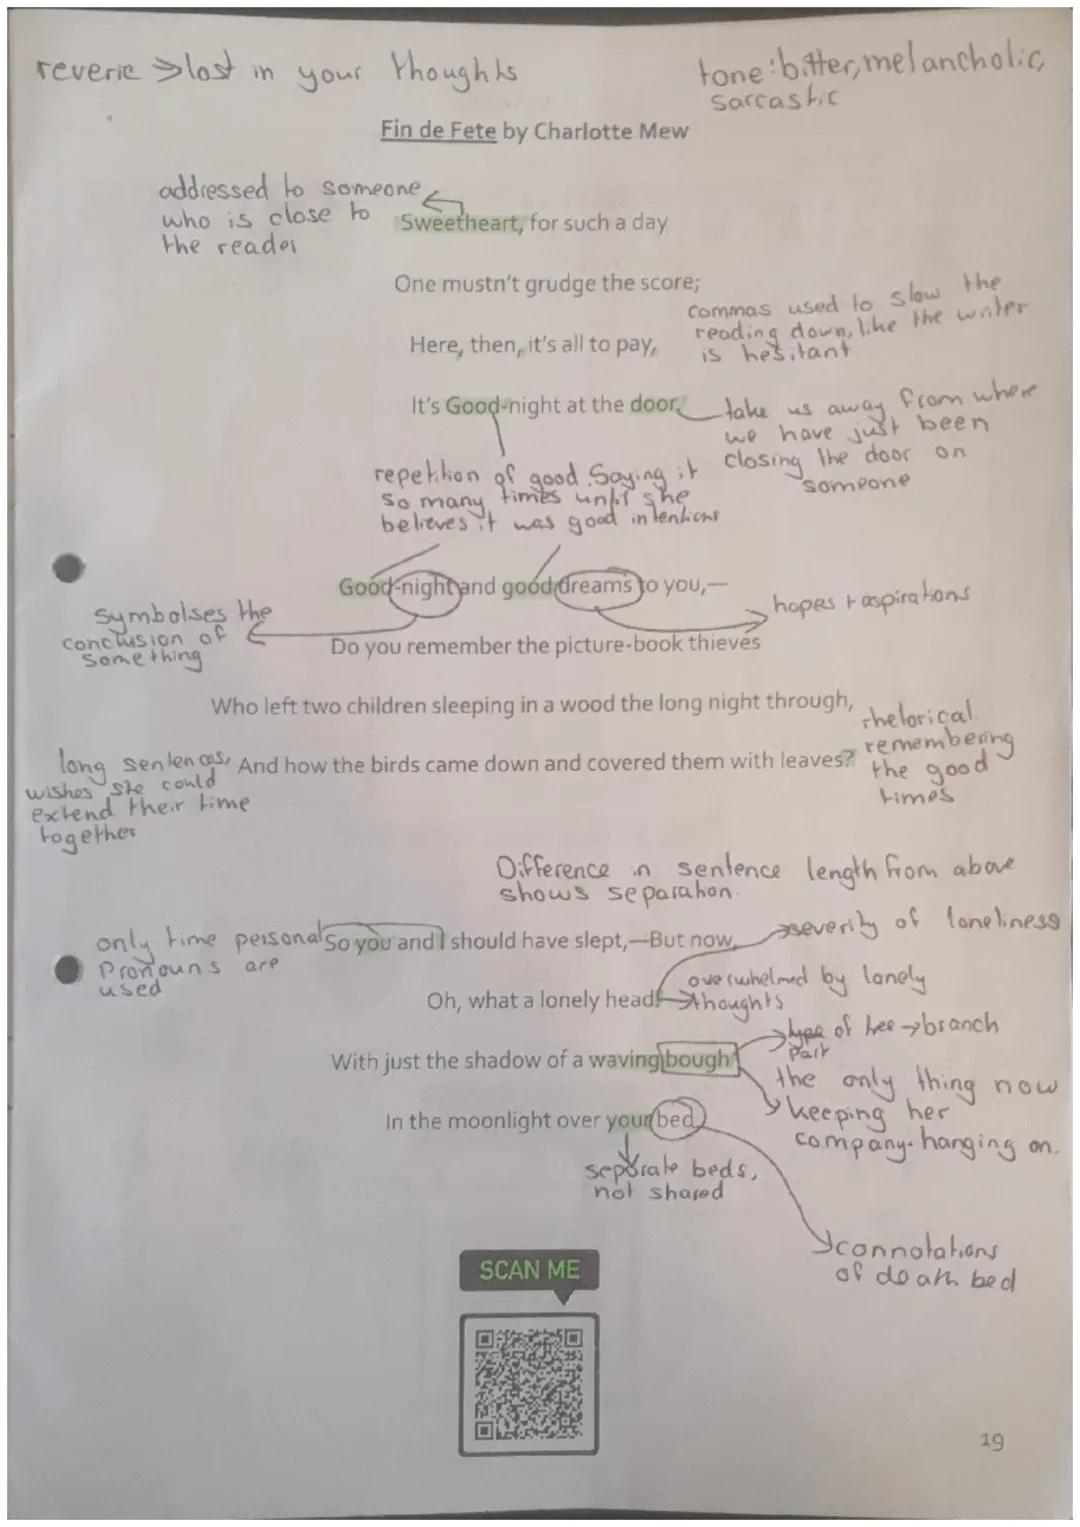 reverie → lost in your thoughts
tone: bitter, melancholic,
sarcastic
Fin de Fete by Charlotte Mew
addressed to someone
who is close to
the reader
Sweetheart, for such a day
One mustn't grudge the score;
commas used to slow the
reading down, like the writer
is hesitant
Here, then, it's all to pay,
It's Good-night at the door.
take us away from where
we have just been
closing the door on
someone
repetition of good. Saying it
so many times until she
believes it was good intentions
Good-night and good dreams to you,—
hopes + aspirations
symbolses the
conclusion of
something
Do you remember the picture-book thieves
Who left two children sleeping in a wood the long night through,
rhetorical.
remembering
the good
times
long sentences,
wishes she could
extend their time
together
And how the birds came down and covered them with leaves?
Difference in sentence length from above
shows separation.
only time personal
Pronouns are
used
So you and I should have slept,—But now,
severity of loneliness
Oh, what a lonely head!
overwhelmed by lonely
thoughts
With just the shadow of a waving bough
type of tree → branch
part
the only thing now
keeping her
company. hanging on.
In the moonlight over your bed.
separate beds,
not shared
connotations
of death bed
SCAN ME
19